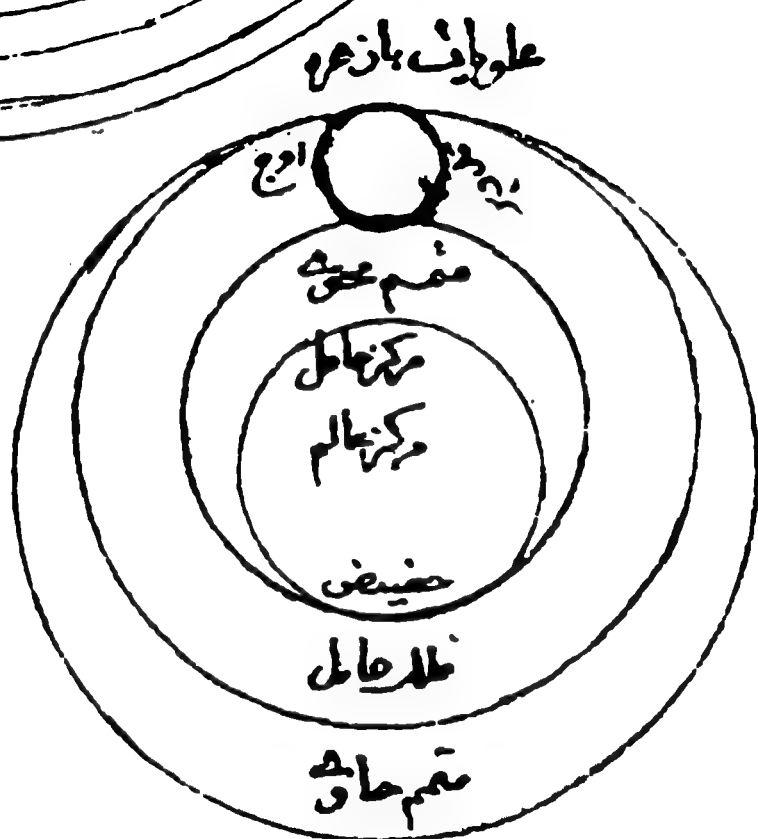 علویات بازهره
اوج
متمم محوی
مرکز حامل
مرکز عالم
حضیض
فلک حامل
متمم حاوی